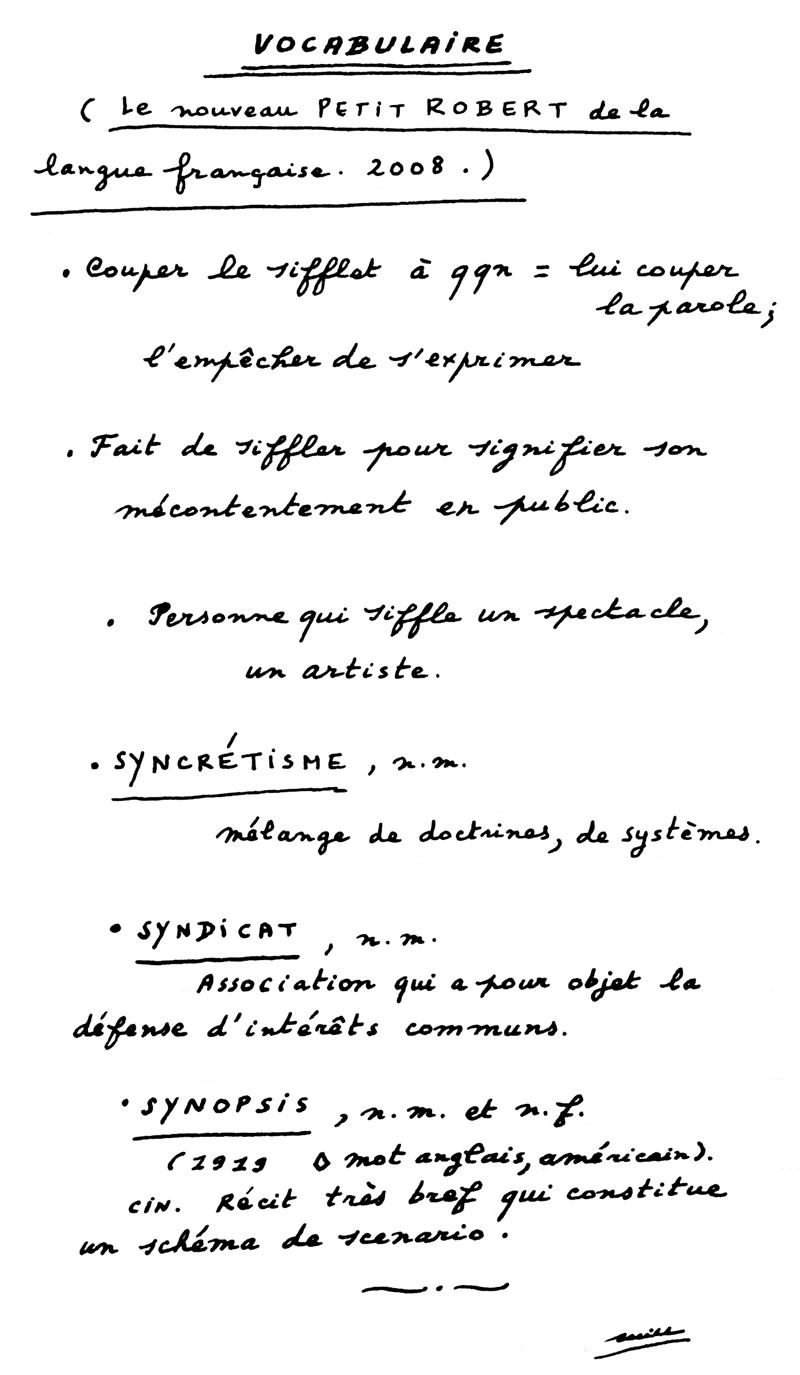 VOCABULAIRE
( Le nouveau PETIT ROBERT de la
langue française. 2008. )
• Couper le sifflet à qqn = lui couper
la parole ;
l'empêcher de s'exprimer
• Fait de siffler pour signifier son
mécontentement en public.
• Personne qui siffle un spectacle,
un artiste.
• SYNCRÉTISME, n.m.
mélange de doctrines, de systèmes.
• SYNDICAT, n.m.
Association qui a pour objet la
défense d'intérêts communs.
• SYNOPSIS, n.m. et n.f.
(1919 ◊ mot anglais, américain).
CIN. Récit très bref qui constitue
un schéma de scenario.